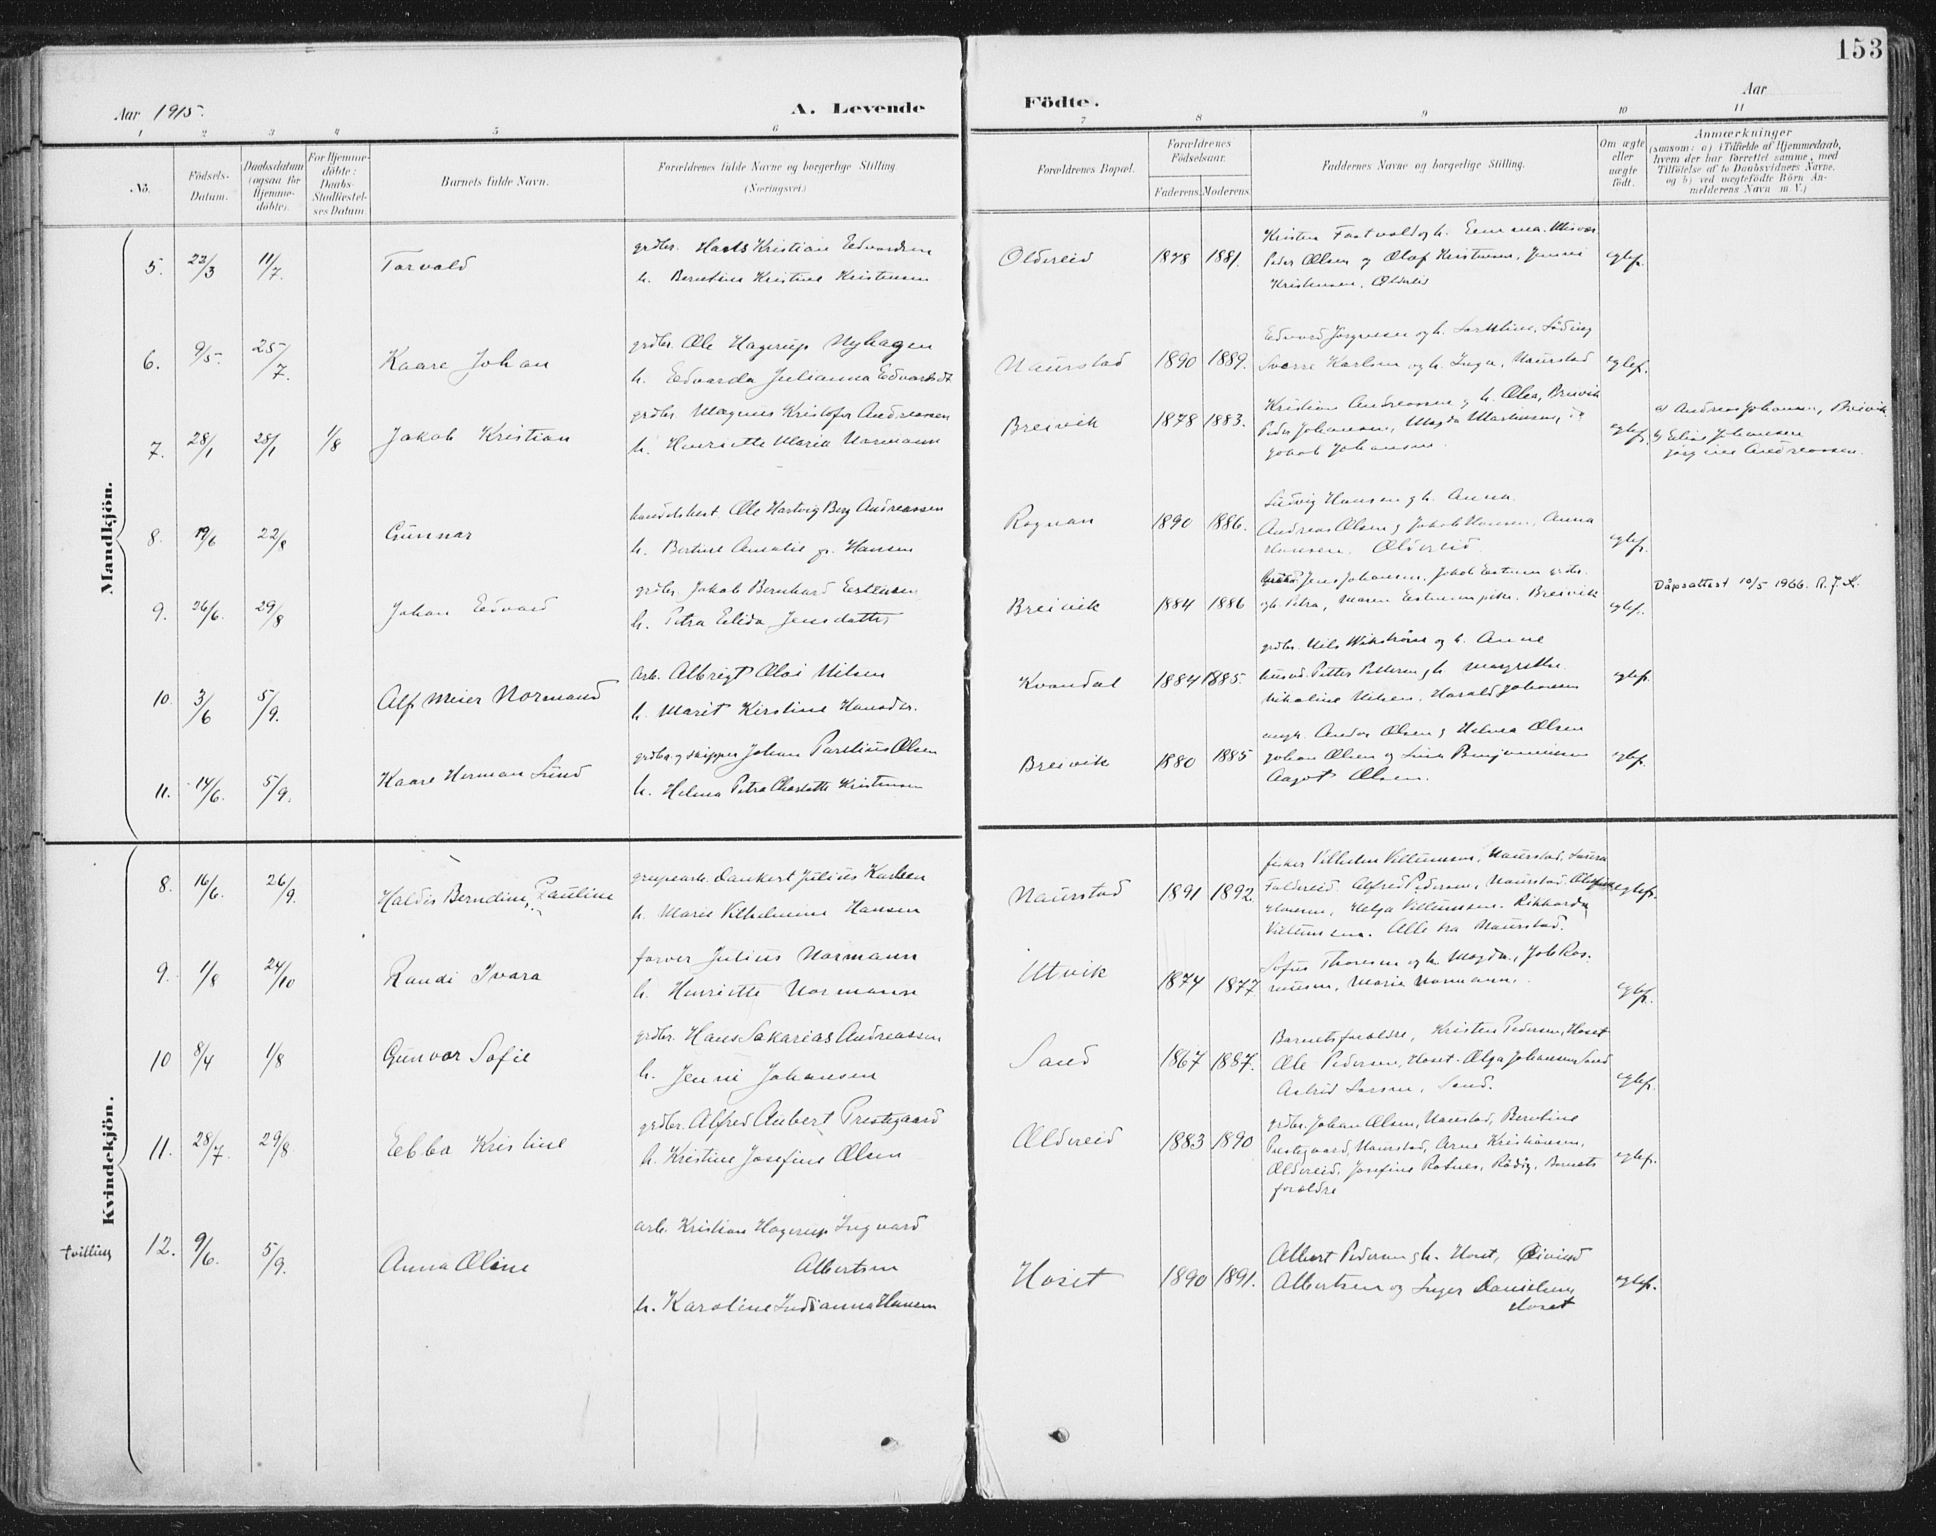 153
Aar 1915.
A. Levende Födte.
Aar
1 2 3 4 5 6 7 8 9 10 11
No.
Födsels-Datum.
Daabsdatum (ogsaa for Hjemme-döbte).
For Hjemme-döbte: Daabs-Stadfæstel-ses Datum
Barnets fulde Navn.
Forældrenes fulde Navne og borgerlige Stilling (Næringsvei.)
Forældrenes Bopæl.
Forældrenes Födselsaar.
Faderens. Moderens.
Faddernes Navne og borgerlige Stilling.
Om ægte eller uægte födt.
Anmærkninger
(saasom: a) i Tilfælde af Hjemmedaab, hvem der har forrettet samme, med Tilföielse af to Daabsvidners Navne, og b) ved uægtefödte Börn An-melderens Navn m. V.)
Mandkjön.
5. 22/3 11/7 Torvald
grdbr. Hans Kristian Edvardsen
h. Berntine Kristine Kristensen
Oldereid 1878 1881.
Kristen Fastvold og h. Emma. Misvær
Peder Olsen og Olaf Kristensen, Jenni
Kristensen, Oldereid
egtef.
6. 9/5 25/7. Kaare Johan
grdbr. Ole Hagerup Nyhagen
h. Edvarda Julianna Edvardsdt
Naurstad 1890 1889.
Edvard Jörgensen og h.
Sverre Karlsen og h. Inga, Naurstad
egtef.
7. 28/1 28/1 1/8 Jakob Kristian
grdbr. Magnus Kristofer Andreassen
h. Henriette Maria Normann
Breivik 1878 1883.
Kristian Andreassen og h. Olea, Breivik
Peder Johansen, Magda Martinsen,
Jakob Johansen.
egtef.
a) Andreas Johansen, Breivik
b) Elise Johansen
Jörgine Andreassen.
8. 19/6 22/8 Gunnar
handelsbest. Ole Hartvig Berg Andreassen
h. Bertine Amalie f. Hansen
Rognan 1890 1886.
Ludvig Hansen og h. Anna.
Andreas Olsen og Jakob Hansen, Anna
Hansen. Oldereid.
egtef.
9. 26/6. 29/8 Johan Edvard
grdbr. Jakob Bernhard Estensen
h. Petra Elida Jensdatter
Breivik 1884 1886
Jens Johansen, Jakob Estensen
og h. Petra, Maren Estensen pike. Breivik
egtef.
Dåpsattest 10/5 1966. R.J.K.
10. 3/6 5/9. Alf Meier Normand
arb. Albrigt Olai Nilsen
h. Marit Kirstine Hansdtr.
Kvandal 1884 1885.
grdbr. Nils Wikström og h. Anne
husmd. Petter Pettersen og h. Margrethe.
Nikoline Nilsen, Harald Johansen
egtef.
11. 14/6. 5/9. Kaare Herman Lund
grdbr. og skipper Johan Parelius Olsen
h. Helma Petra Charlotte Kristensen
Breivik 1880 1885
ungk. Andor Olsen og Helma Olsen
Johan Olsen og Lina Benjaminsen
Aagot Olsen.
egtef.
Kvindekjön.
8. 16/6. 26/9. Haldis Berndine, Pauline
grubearb. Dankert Julius Karlsen
h. Marie Vilhelmine Hansen
Naurstad 1891 1892.
fisker Vilhelm Villumsen, Naurstad,
Foldereid. Alfred Pedersen, Naurstad.
Hansen, Helga Villumsen. Rikharda
Villumsen. Alle fra Naurstad.
egtef.
9. 1/8 24/10 Randi Ivara
farver Julius Normann
h. Henriette Normann
Utvik 1874 1877
Sofus Thoresen og h. Magda, Job Ras-
mussen, Marie Normann.
egtef.
10 8/4 1/8 Gunvor Sofie
grdbr. Hans Sakarias Andreassen
h. Jenni Johansen
Sand 1867 1887.
Barnets forældre, Kristen Pedersen, Hoset
Ole Pedersen, Hoset. Olga Johansen, Sand
Astrid Larsen, Sand.
egtef.
11. 28/7. 29/8 Ebba Kristine
grdbr. Alfred Anbert Prestegaard
h. Kristine Josefine Olsen
Oldereid 1883 1890
grdbr. Johan Olsen, Naurstad, Berntine
Prestegaard, Naurstad, Arne Kristiansen,
Oldereid, Josefine Rotnes, Röding. Barnets
forældre
egtef.
tvilling
12. 9/6. 5/9. Anna Oline
arb. Kristian Hagerup Ingvard
Albertsen
h. Karoline Indianna Hansen
Hoset 1890 1891.
Albert Pedersen og h. Hoset, Öivind
Albertsen og Inger Danielsen,
Hoset
egtef.